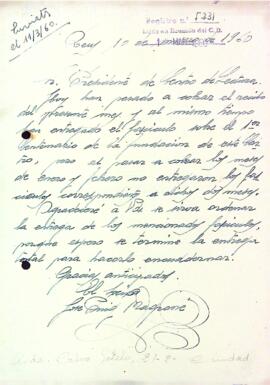 Registro n.° 5331
el 11/3/60.
Reus, 10 de 1960
Sr. Presidente de Centro de Lectura.
Hoy han pasado a cobrar el recibo
del presente mes y al mismo tiempo
han entregado el fascículo sobre el 1er
Centenario de la fundacion de este
pero al pasar a cobrar los meses
de enero y febrero no entregaron los fas-
cículos correspondientes a dichos dos meses.
Agradeceré a Vd. se sirva ordenar
la entrega de los mencionados fascículos,
pues espero se termine la entrega
total para hacerlo encuadernar.
Gracias anticipadas.
El Socio
José
Avda. Calvo Sotelo, Ciudad